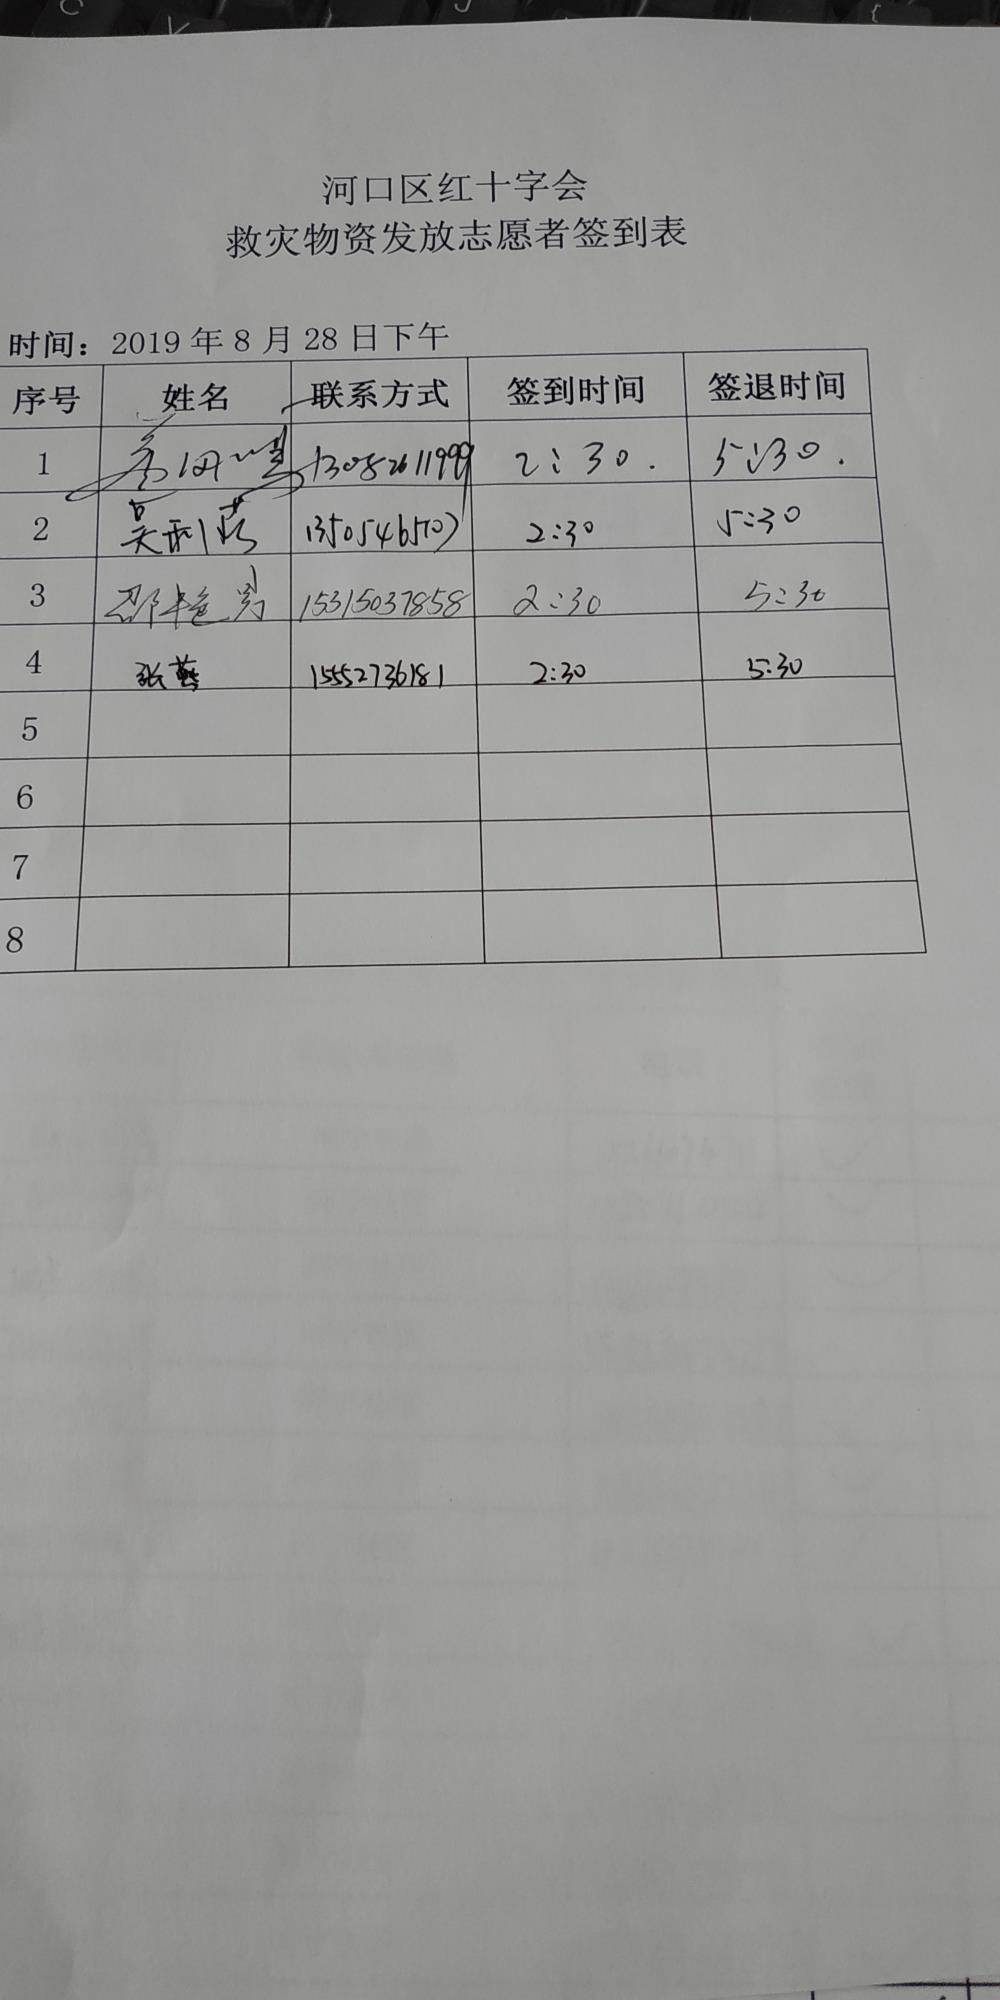 河口区红十字会
救灾物资发放志愿者签到表
时间：2019 年 8 月 28 日下午
序号 姓名 联系方式 签到时间 签退时间
1 13082611999 2:30. 5:30.
2 吴利 2:30 5:30
3 邵艳 15315037858 2:30 5:30
4 张燕 15552736181 2:30 5:30
5
6
7
8